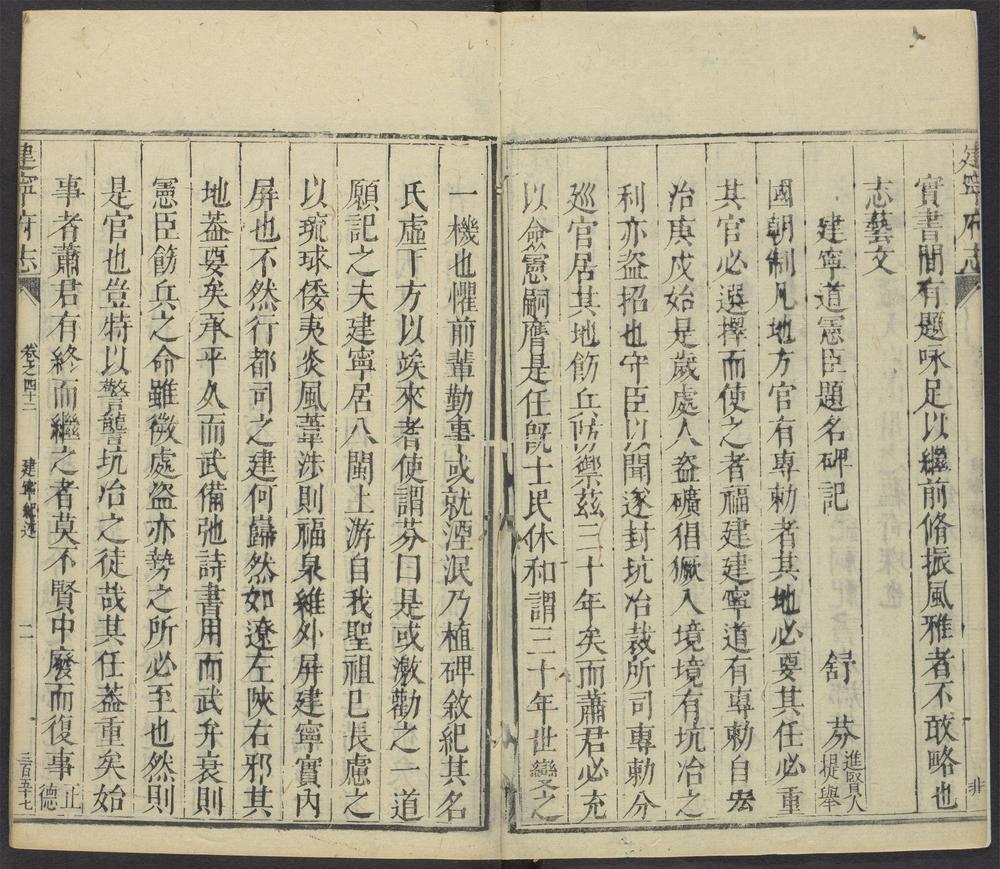 建寧府志
非
實書間有題咏足以繼前脩振風雅者不敢略也
志藝文
建寧道憲臣題名碑記
舒芬進賢人提舉
國朝制凡地方官有專勅者其地必要其任必重
其官必選擇而使之者福建建寧道有專勅自宏
治庚戌始是歲處人盜礦猖獗入境境有坑冶之
利亦盜招也守臣以聞遂封坑冶裁所司專勅分
巡官居其地飭兵防禦茲三十年矣而蕭君必充
以僉憲嗣膺是任旣士民休和謂三十年世變之
一機也懼前輩勤事或就湮泯乃植碑敘紀其名
氏虛下方以竢來者使謂芬曰是或激勸之一道
願記之夫建寧居八閩上游自我聖祖已長慮之
以琉球倭夷炎風葦涉則福泉維外屏建寧實內
屏也不然行都司之建何巋然如遼左陝右邪其
地蓋要矣承平久而武備弛詩書用而武弁衰則
憲臣飭兵之命雖微處盜亦勢之所必至也然則
是官也豈特以警讋坑冶之徒哉其任蓋重矣始
事者蕭君有終而繼之者莫不賢中廢而復事正德
建寧府志
卷之四十二
建寧紀述
二
三百五十七